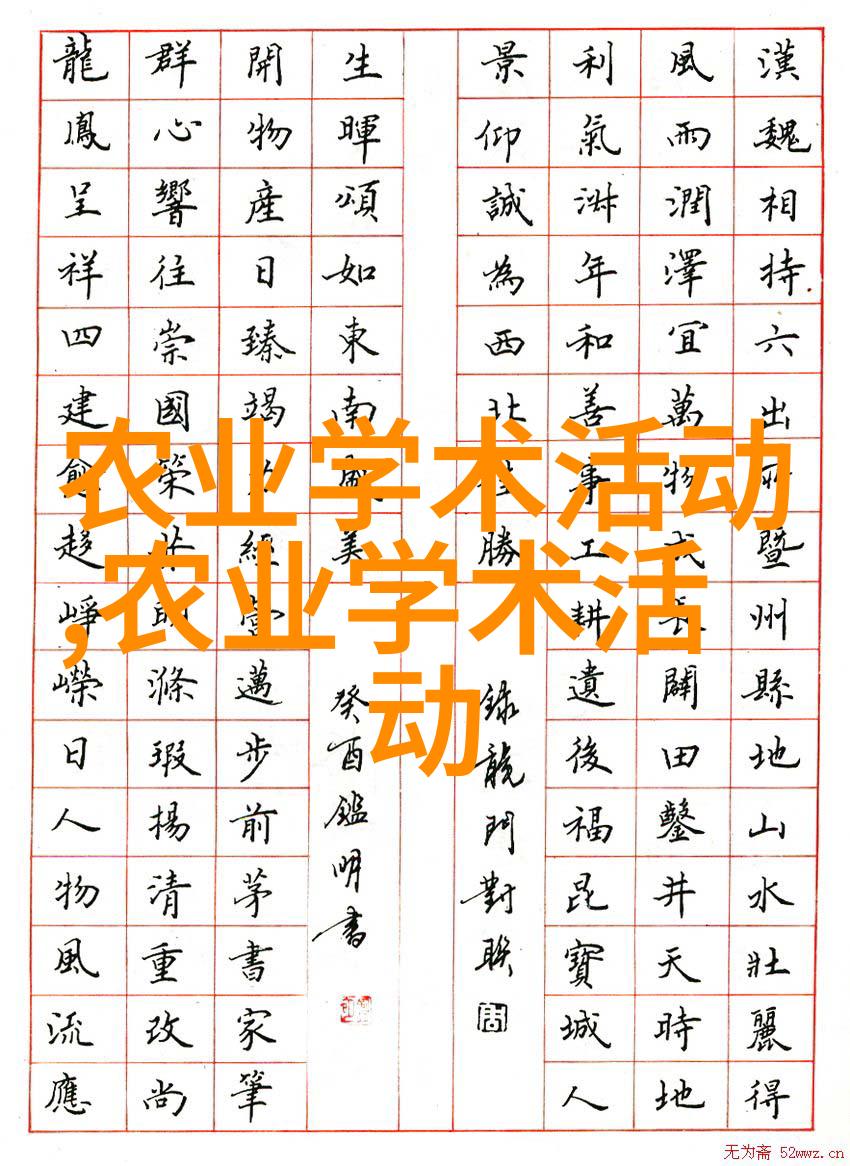 农业学术活动
,农业学术活
动
漢魏相持六出暨州縣地山水壯麗得
風雨潤澤宜萬物成長闢田鑿井天時地
利氣淑年和善事工耕遺後福昆寶城人
景仰誠為西北勝
錄龍門對聯
生暉頌如東南風美
癸酉鑑明書
開物產日臻竭力經營邁步前茅書家筆
群心響往崇國榮共明滌瑕揚清重改尚
龍鳳呈祥四建愈趍崢嶸日人物風流應
无为斋 52wwz.cn